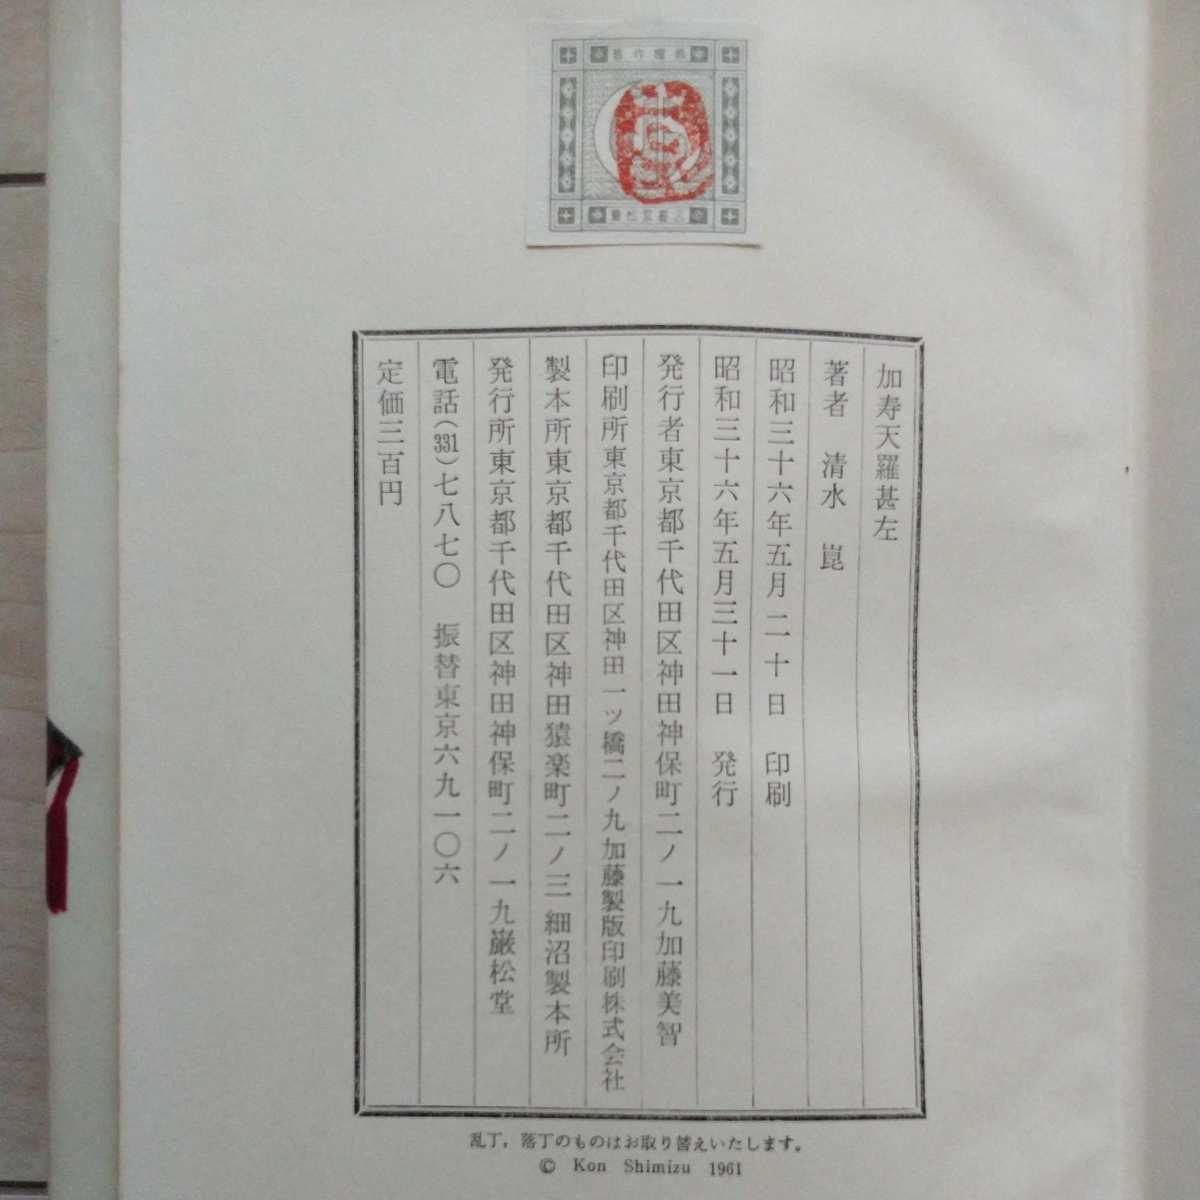 加寿天羅甚左
著者 清水 崑
昭和三十六年五月二十日 印刷
昭和三十六年五月三十一日 発行
発行者東京都千代田区神田神保町二ノ一九加藤美智
印刷所東京都千代田区神田一ツ橋二ノ九加藤製版印刷株式会社
製本所東京都千代田区神田猿楽町二ノ三細沼製本所
発行所東京都千代田区神田神保町二ノ一九巌松堂
電話(331)七八七〇 振替東京六九一〇六
定価三百円
乱丁，落丁のものはお取り替えいたします。
© Kon Shimizu 1961